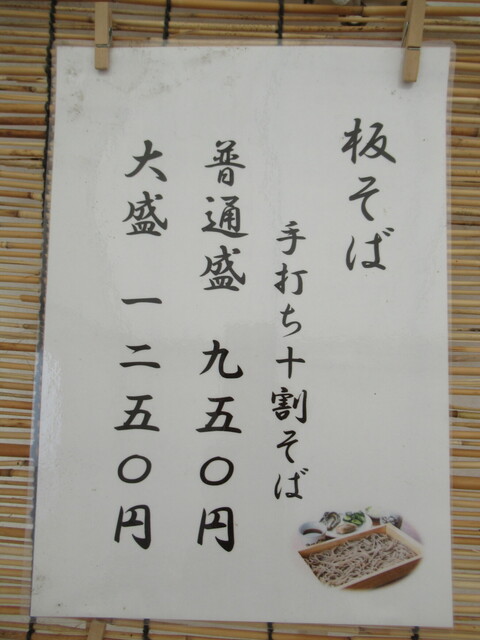 板そば
手打ち十割そば
普通盛 九五〇円
大盛 一二五〇円